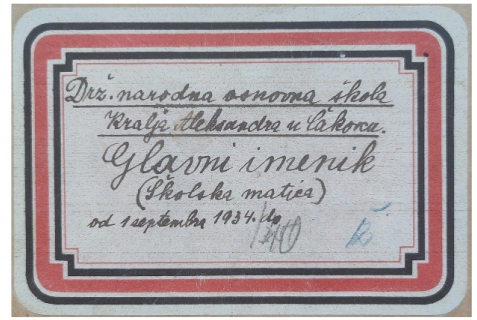 Drž. narodna osnovna škola
Kralja Aleksandra u Čakovcu.
Glavni imenik
(Školska matica)
od 1 septembra 1934. do